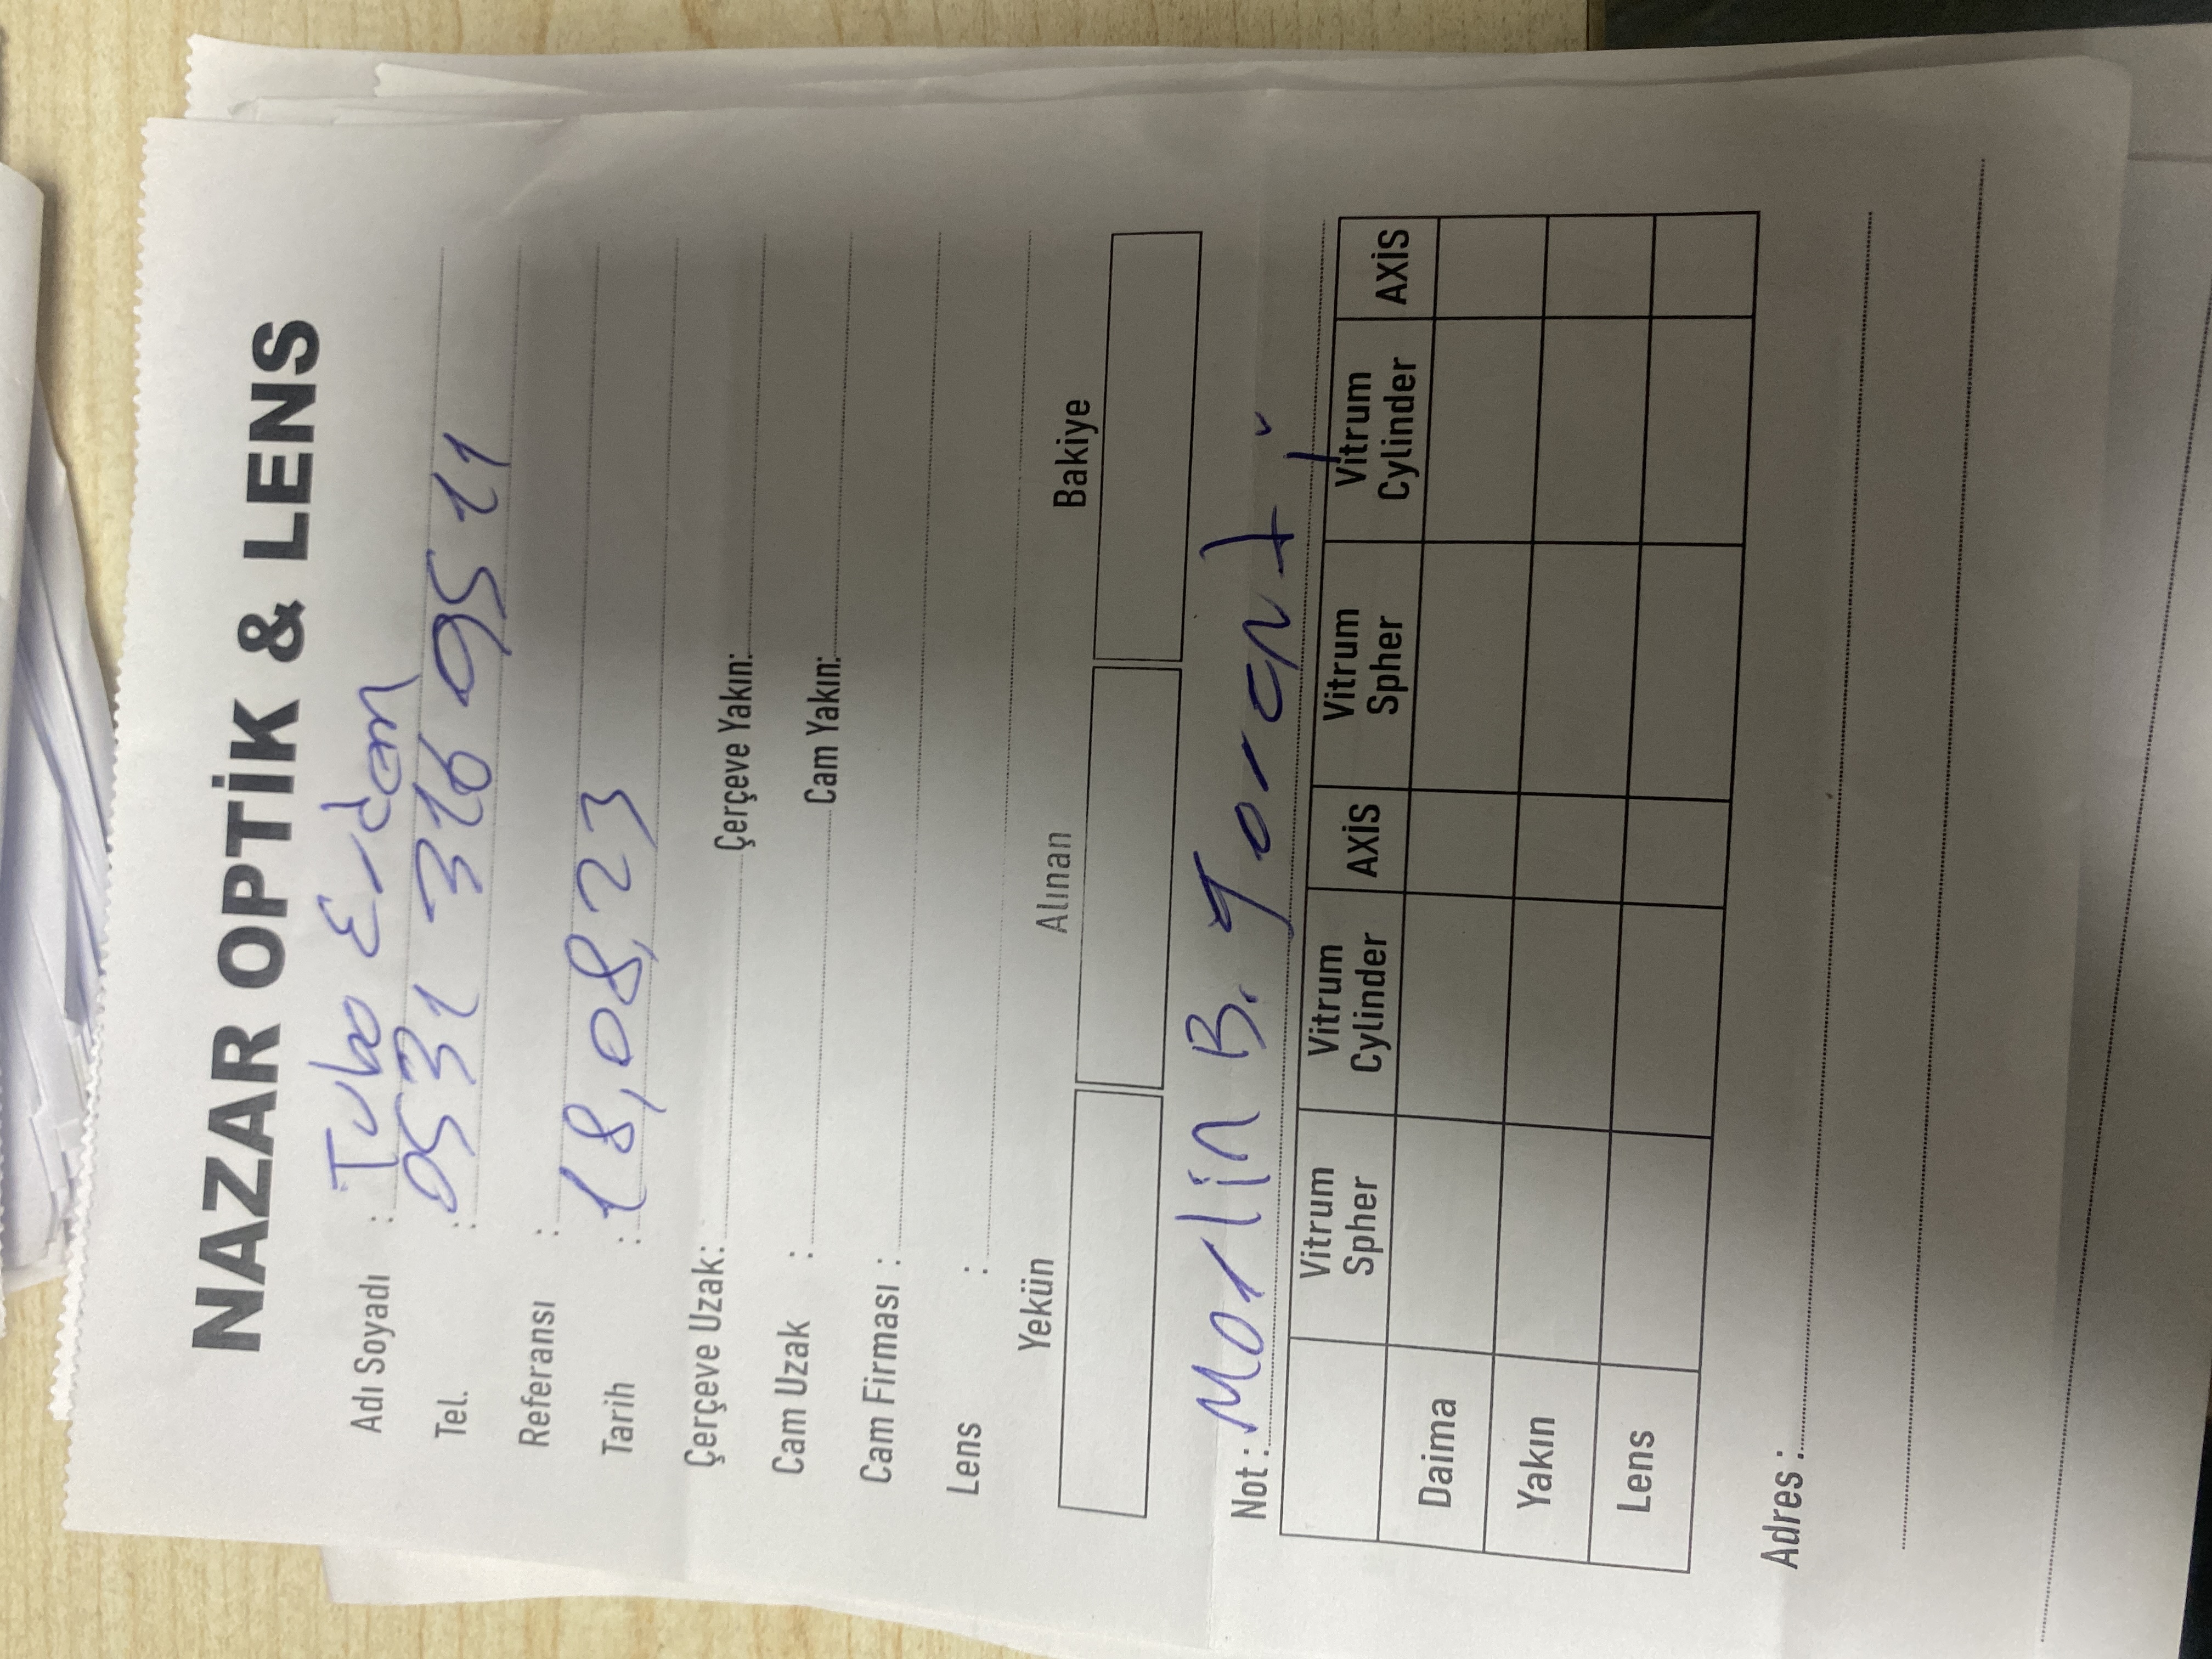 NAZAR OPTİK & LENS
Adı Soyadı : Tuba Erdem
Tel. : 0531 316 9511
Referansı :
Tarih : 18,08,23
Çerçeve Uzak: Çerçeve Yakın:
Cam Uzak : Cam Yakın:
Cam Firması :
Lens :
Yekün Alınan Bakiye
Not : Marlin B. garanti
Vitrum Spher Vitrum Cylinder AXİS Vitrum Spher Vitrum Cylinder AXİS
Daima
Yakın
Lens
Adres :